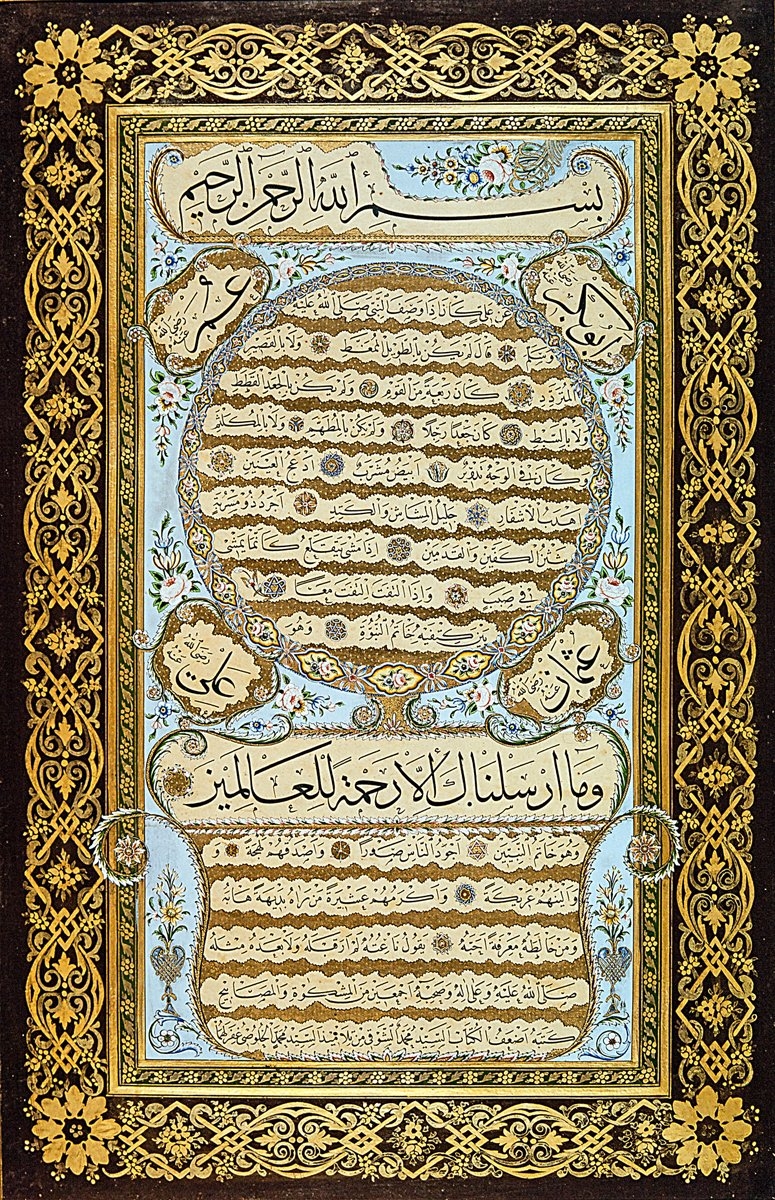 بسم الله الرحمن الرحيم
ابو بكر رضي الله عنه
عمر رضي الله عنه
عن علي كان اذا وصف النبي صلى الله عليه
وسلم قال لم يكن بالطويل الممغط ولا بالقصير
المتردد كان ربعة من القوم ولم يكن بالجعد القطط
ولا بالسبط كان جعدا رجلا ولم يكن بالمطهم ولا بالمكلثم
وكان في الوجه تدوير ابيض مشرب ادعج العينين
اهدب الاشفار جليل المشاش والكتد اجرد ذو مسربة
شثن الكفين والقدمين اذا مشى يتقلع كانما يمشي
في صبب واذا التفت التفت معا
بين كتفيه خاتم النبوة وهو
عثمان رضي الله عنه
علي رضي الله عنه
وما ارسلناك الا رحمة للعالمين
وهو خاتم النبيين اجود الناس صدرا واصدقهم لهجة و
والينهم عريكة واكرمهم عشيرة من راه بديهة هابه
ومن خالطه معرفة احبه يقول ناعته لم ار قبله ولا بعده مثله
صلى الله عليه وعلى اله وصحبه اجمعين من المشكوة والمصابيح
كتبه اضعف الكتاب السيد محمد الشوقي من تلاميذ السيد محمد الخلوصي